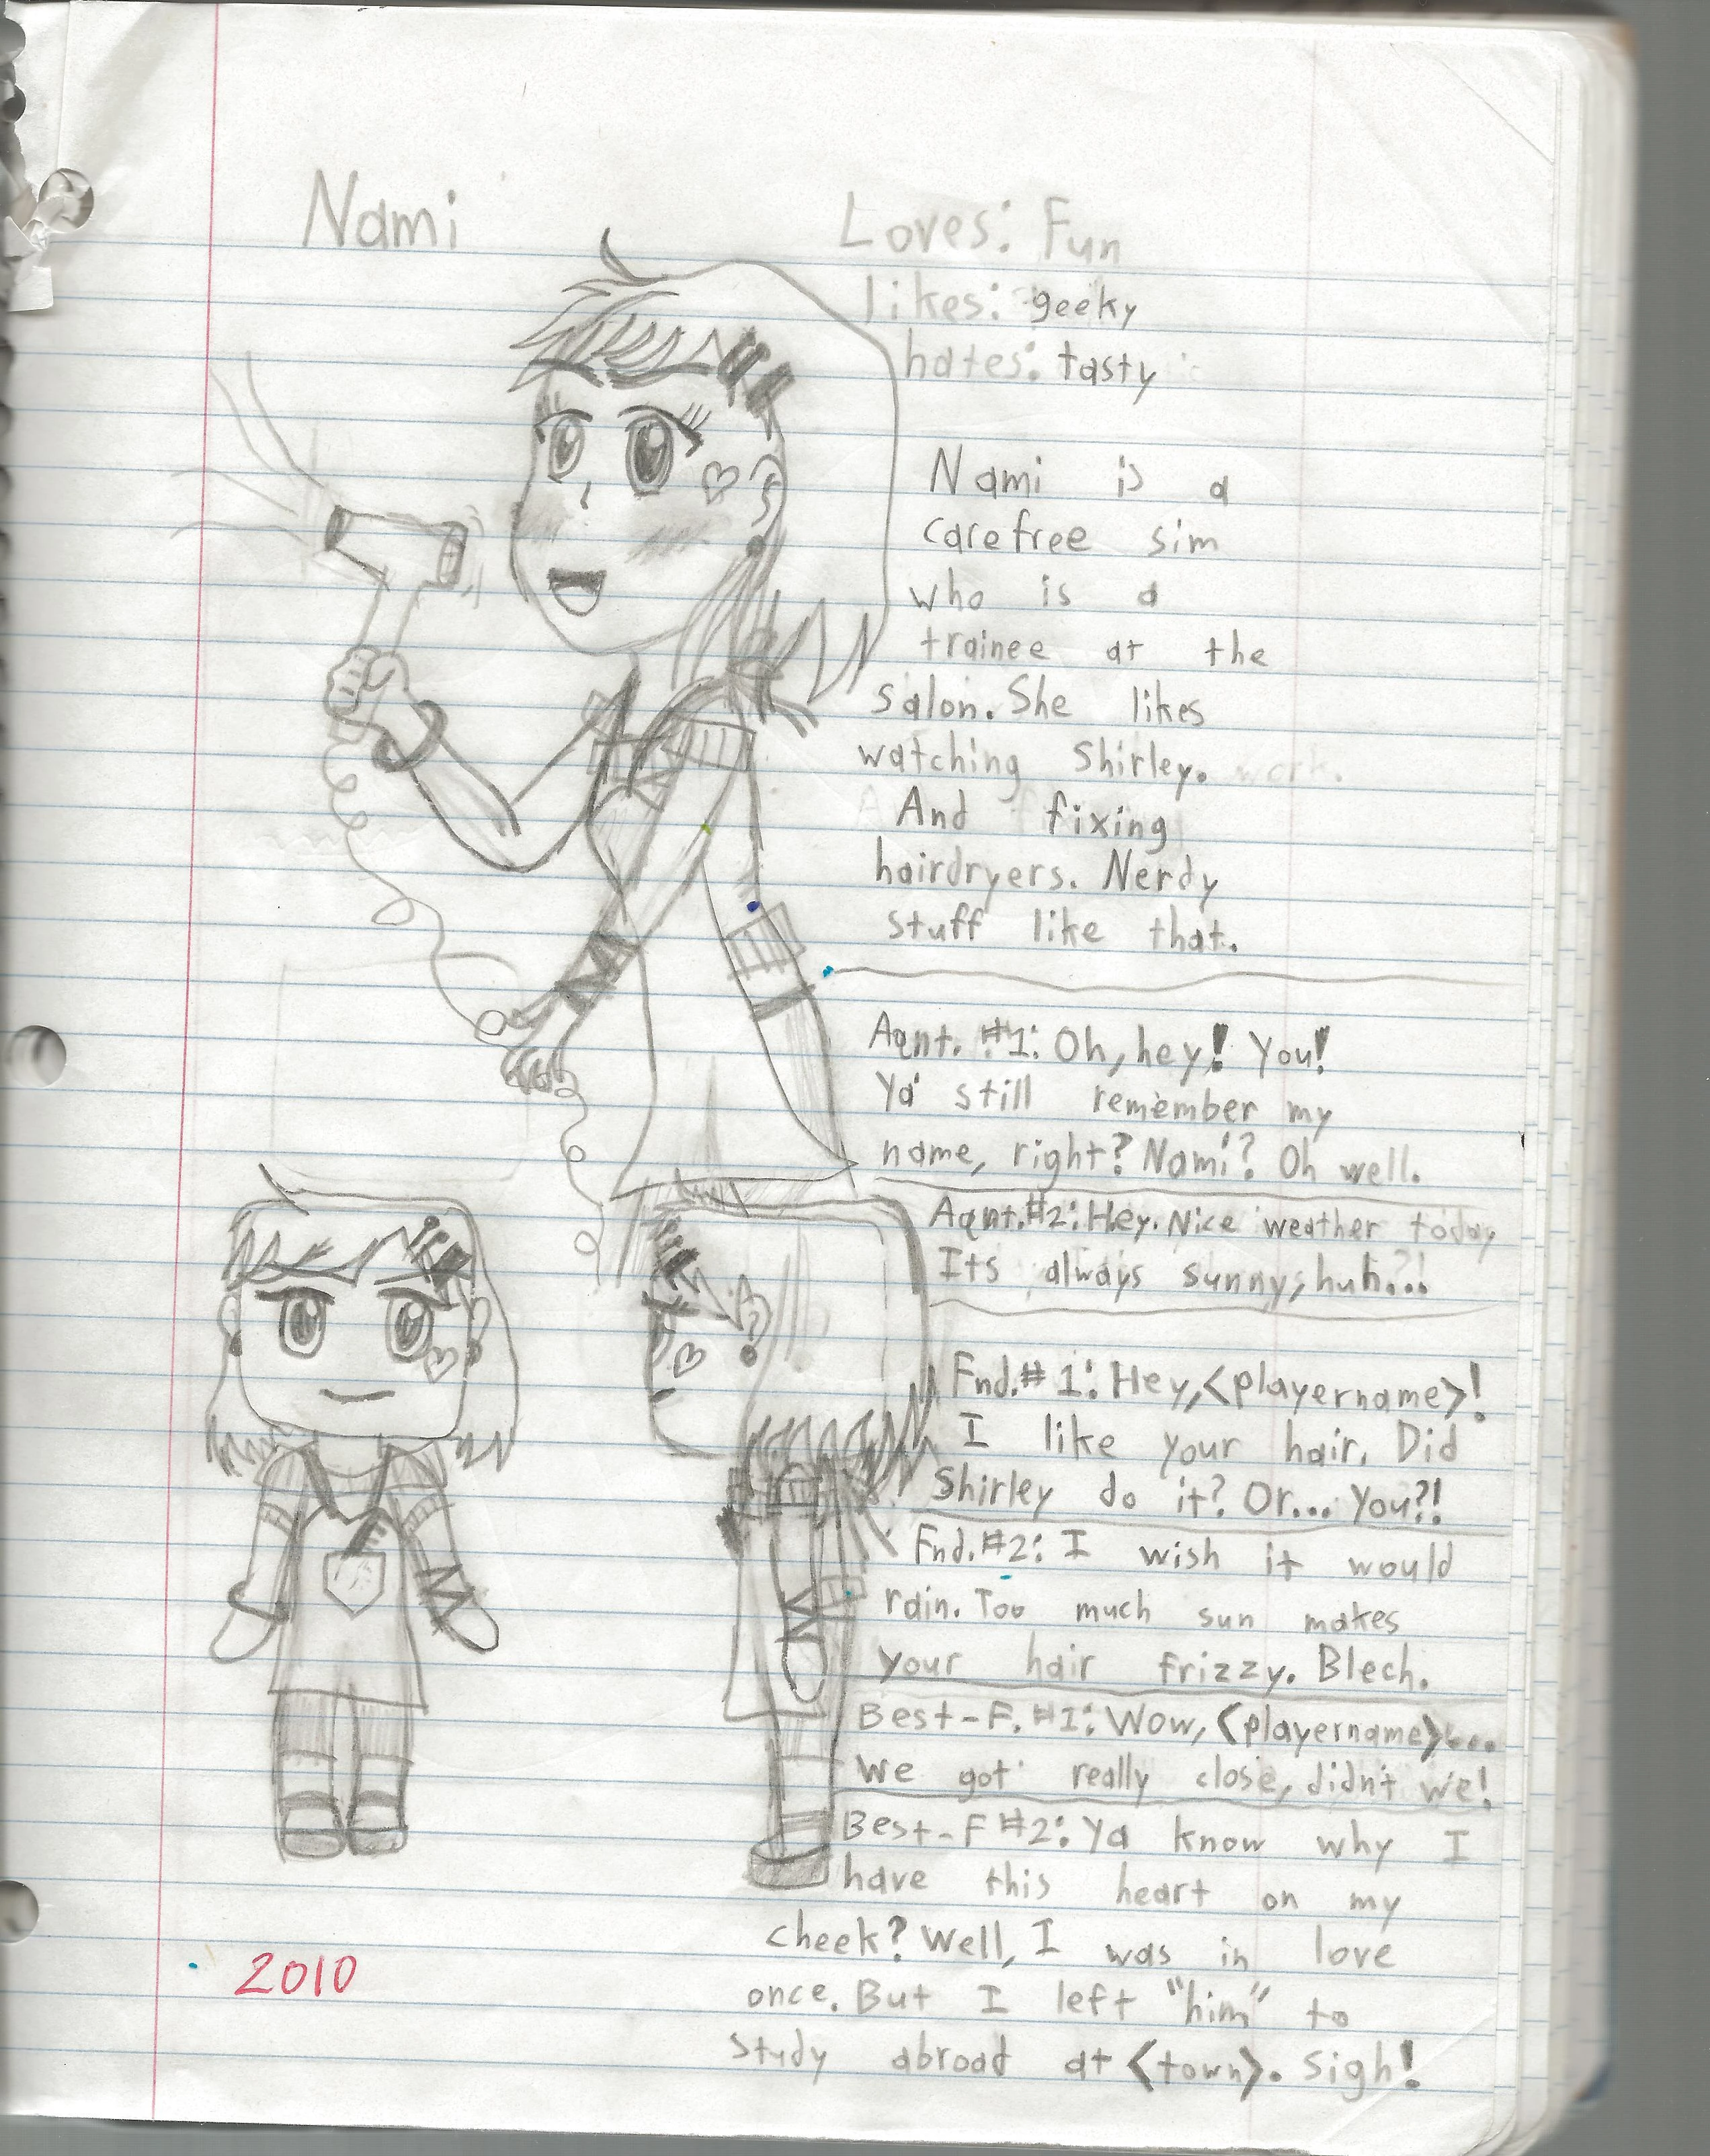 Nami
Loves: Fun
likes: geeky
hates: tasty
Nami is a
carefree sim
who is a
trainee at the
salon. She likes
watching Shirley. work.
And fixing
hairdryers. Nerdy
stuff like that.
Aqnt. #1: Oh, hey! You!
Ya still remember my
name, right? Nami? Oh well.
Aqnt. #2: Hey. Nice weather today
Its always sunny, huh...
Fnd. #1: Hey, <playername>!
I like your hair. Did
Shirley do it? Or... You?!
Fnd. #2: I wish it would
rain. Too much sun makes
your hair frizzy. Blech.
Best-F. #1: Wow, <playername>...
We got really close, didn't we!
Best-F #2: Ya know why I
have this heart on my
cheek? Well, I was in love
once. But I left "him" to
study abroad at <town>. Sigh!
2010